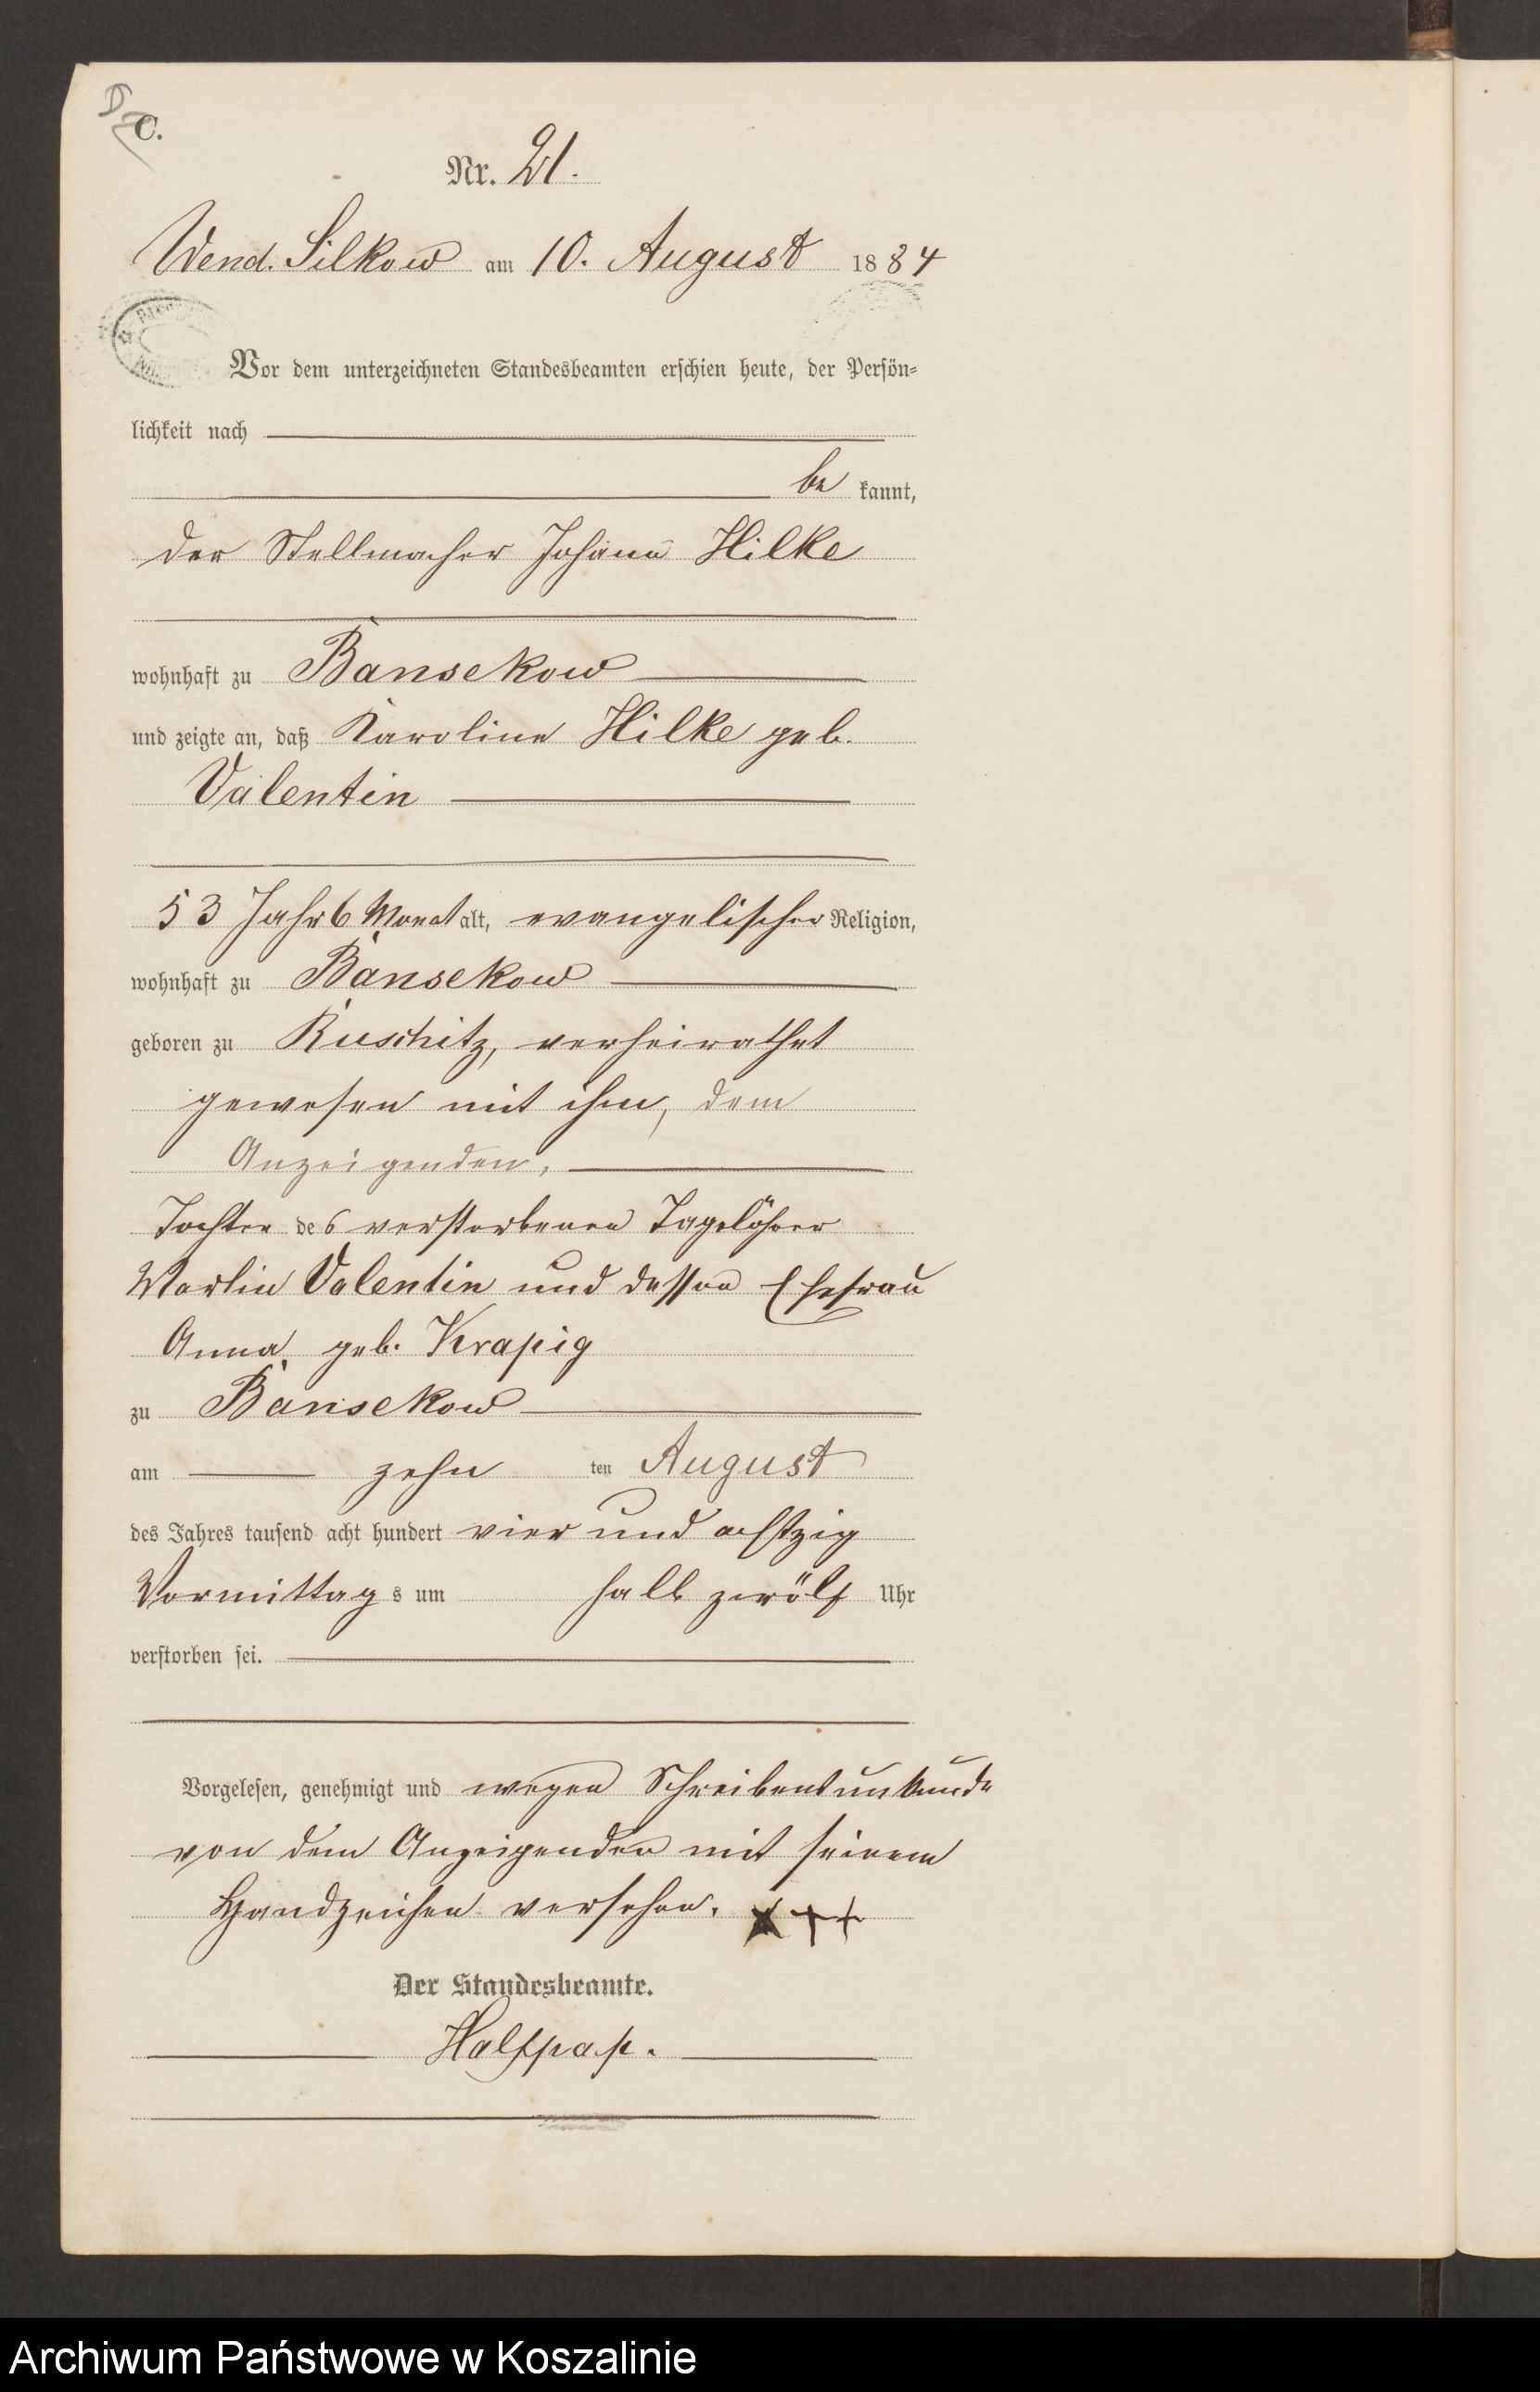 C.
Nr. 21.
Wend. Silkow am 10. August 1884
Vor dem unterzeichneten Standesbeamten erschien heute, der Persön-
lichkeit nach
be kannt,
der Stellmacher Johann Hilke
wohnhaft zu Bansekow
und zeigte an, daß Karoline Hilke geb.
Valentin
53 Jahr 6 Monat alt, evangelischer Religion,
wohnhaft zu Bansekow
geboren zu Ruschitz, verheirathet
gewesen mit ihm, dem
Anzeigenden,
Tochter des verstorbenen Tagelöhner
Martin Valentin und dessen Ehefrau
Anna geb. Krapig
zu Bansekow
am zehn ten August
des Jahres tausend acht hundert vier und achtzig
Vormittag s um halb zwölf Uhr
verstorben sei.
Vorgelesen, genehmigt und wegen Schreibensunkunde
von dem Anzeigenden mit seinem
Handzeichen versehen. +++
Der Standesbeamte.
Halfpap.
Archiwum Państwowe w Koszalinie